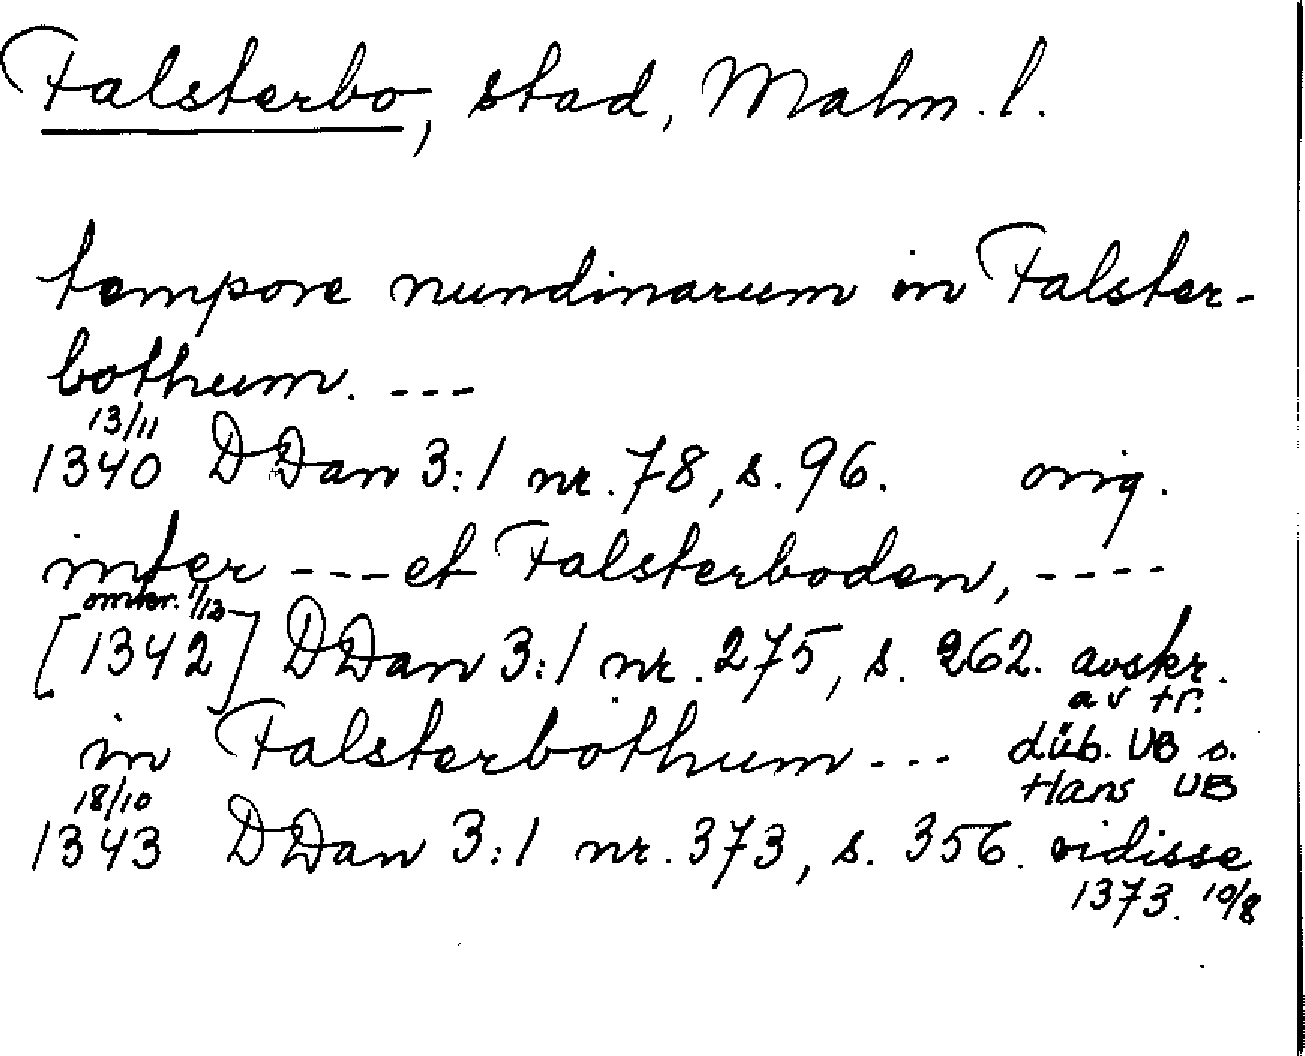 Falsterbo, stad, Malm. l.
tempore nundinarum in Falster-
bothum. ---
13/11
1340 DDan 3:1 nr. 78, s. 96. orig.
inter --- et Falsterboden, ----
omkr. 1/12
[1342] DDan 3:1 nr. 275, s. 262. avskr.
av tr.
in Falsterbothum --- Lüb. UB o.
Hans UB
18/10
1343 DDan 3:1 nr. 373, s. 356. vidisse
1373. 10/8